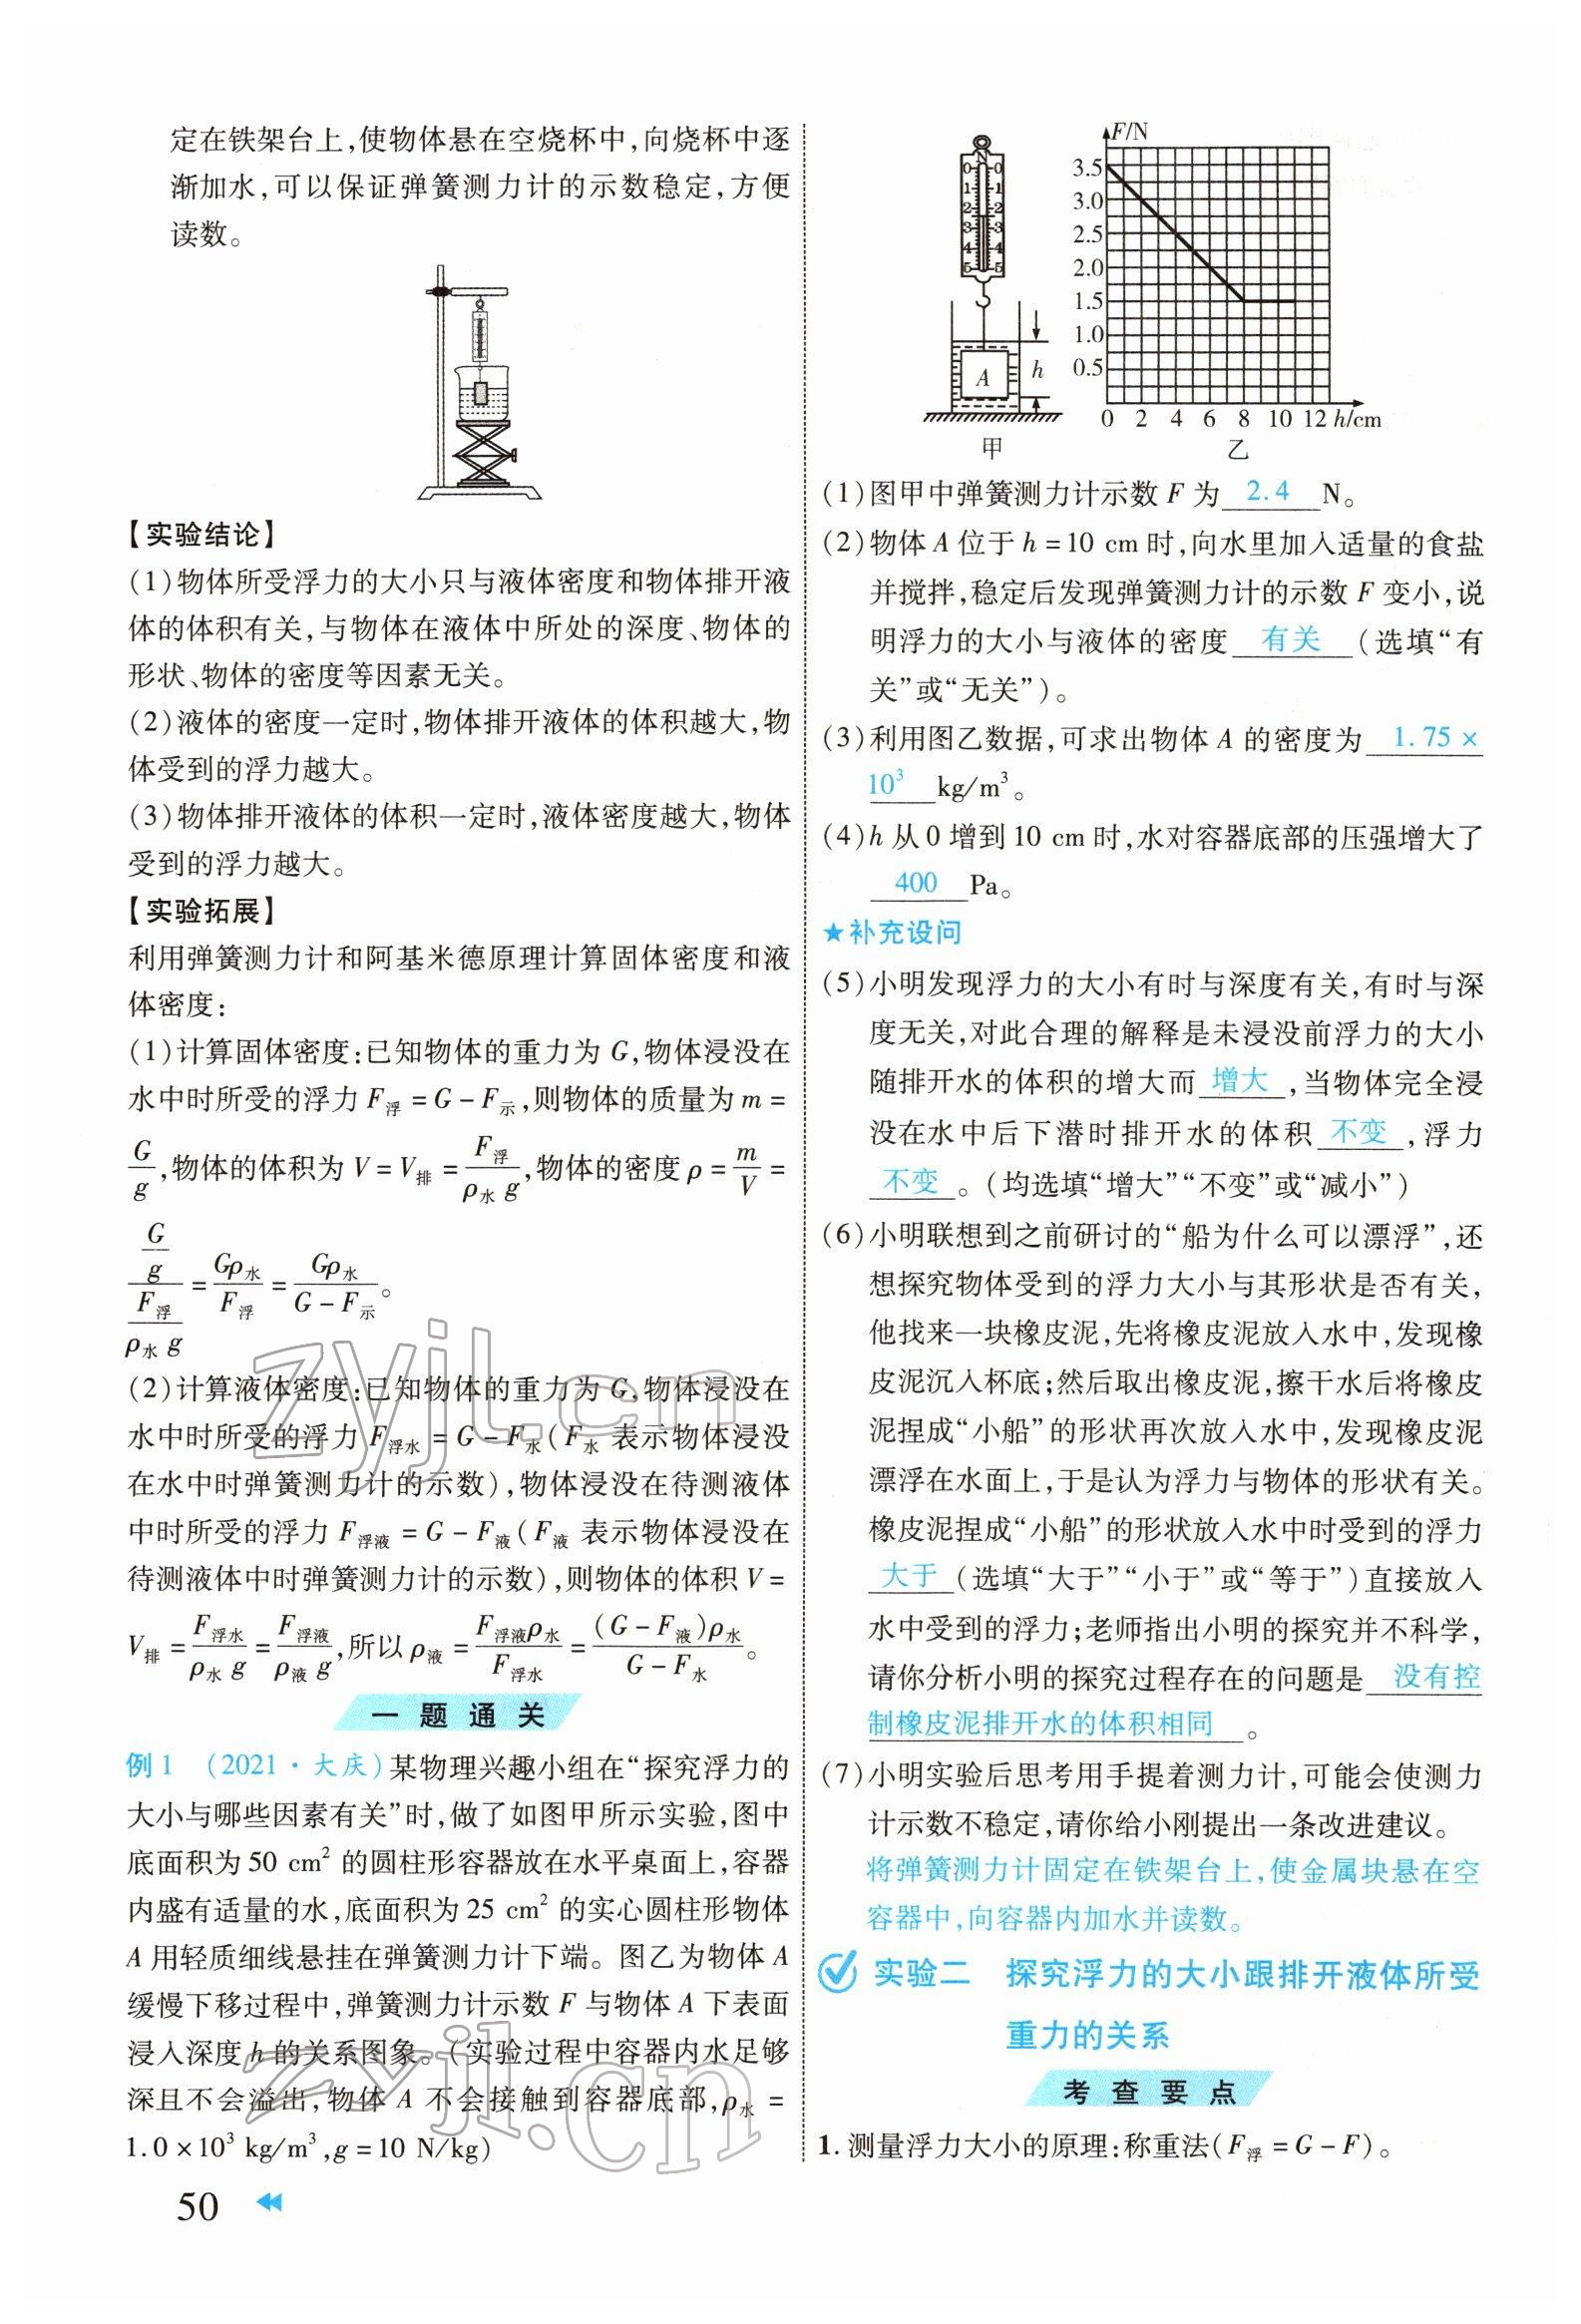 定在铁架台上,使物体悬在空烧杯中,向烧杯中逐
渐加水,可以保证弹簧测力计的示数稳定,方便
读数。
【实验结论】
(1)物体所受浮力的大小只与液体密度和物体排开液
体的体积有关,与物体在液体中所处的深度、物体的
形状、物体的密度等因素无关。
(2)液体的密度一定时,物体排开液体的体积越大,物
体受到的浮力越大。
(3)物体排开液体的体积一定时,液体密度越大,物体
受到的浮力越大。
【实验拓展】
利用弹簧测力计和阿基米德原理计算固体密度和液
体密度:
(1)计算固体密度:已知物体的重力为 G,物体浸没在
水中时所受的浮力 F浮 = G - F示,则物体的质量为 m =
G/g,物体的体积为 V = V排 = F浮/(ρ水 g),物体的密度 ρ = m/V =
(G/g)/(F浮/(ρ水 g)) = Gρ水/F浮 = Gρ水/(G - F示)。
(2)计算液体密度:已知物体的重力为 G,物体浸没在
水中时所受的浮力 F浮水 = G - F水(F水 表示物体浸没
在水中时弹簧测力计的示数),物体浸没在待测液体
中时所受的浮力 F浮液 = G - F液(F液 表示物体浸没在
待测液体中时弹簧测力计的示数),则物体的体积 V =
V排 = F浮水/(ρ水 g) = F浮液/(ρ液 g),所以 ρ液 = F浮液ρ水/F浮水 = (G - F液)ρ水/(G - F水)。
一 题 通 关
例1 (2021·大庆)某物理兴趣小组在“探究浮力的
大小与哪些因素有关”时,做了如图甲所示实验,图中
底面积为 50 cm² 的圆柱形容器放在水平桌面上,容器
内盛有适量的水,底面积为 25 cm² 的实心圆柱形物体
A 用轻质细线悬挂在弹簧测力计下端。图乙为物体 A
缓慢下移过程中,弹簧测力计示数 F 与物体 A 下表面
浸入深度 h 的关系图象。(实验过程中容器内水足够
深且不会溢出,物体 A 不会接触到容器底部,ρ水 =
1.0×10³ kg/m³,g=10 N/kg)
50
N
0 0
1 1
2 2
3 3
4 4
5 5
A
h
甲
F/N
3.5
3.0
2.5
2.0
1.5
1.0
0.5
0 2 4 6 8 10 12 h/cm
乙
(1)图甲中弹簧测力计示数 F 为 2.4 N。
(2)物体 A 位于 h=10 cm 时,向水里加入适量的食盐
并搅拌,稳定后发现弹簧测力计的示数 F 变小,说
明浮力的大小与液体的密度 有关 (选填“有
关”或“无关”)。
(3)利用图乙数据,可求出物体 A 的密度为 1.75 ×
10³ kg/m³。
(4)h 从 0 增到 10 cm 时,水对容器底部的压强增大了
400 Pa。
★补充设问
(5)小明发现浮力的大小有时与深度有关,有时与深
度无关,对此合理的解释是未浸没前浮力的大小
随排开水的体积的增大而 增大 ,当物体完全浸
没在水中后下潜时排开水的体积 不变 ,浮力
不变 。(均选填“增大”“不变”或“减小”)
(6)小明联想到之前研讨的“船为什么可以漂浮”,还
想探究物体受到的浮力大小与其形状是否有关,
他找来一块橡皮泥,先将橡皮泥放入水中,发现橡
皮泥沉入杯底;然后取出橡皮泥,擦干水后将橡皮
泥捏成“小船”的形状再次放入水中,发现橡皮泥
漂浮在水面上,于是认为浮力与物体的形状有关。
橡皮泥捏成“小船”的形状放入水中时受到的浮力
大于 (选填“大于”“小于”或“等于”)直接放入
水中受到的浮力;老师指出小明的探究并不科学,
请你分析小明的探究过程存在的问题是 没有控
制橡皮泥排开水的体积相同 。
(7)小明实验后思考用手提着测力计,可能会使测力
计示数不稳定,请你给小刚提出一条改进建议。
将弹簧测力计固定在铁架台上,使金属块悬在空
容器中,向容器内加水并读数。
实验二 探究浮力的大小跟排开液体所受
重力的关系
考 查 要 点
1.测量浮力大小的原理:称重法(F浮 = G - F)。
zyjl.cn
zyjl.cn